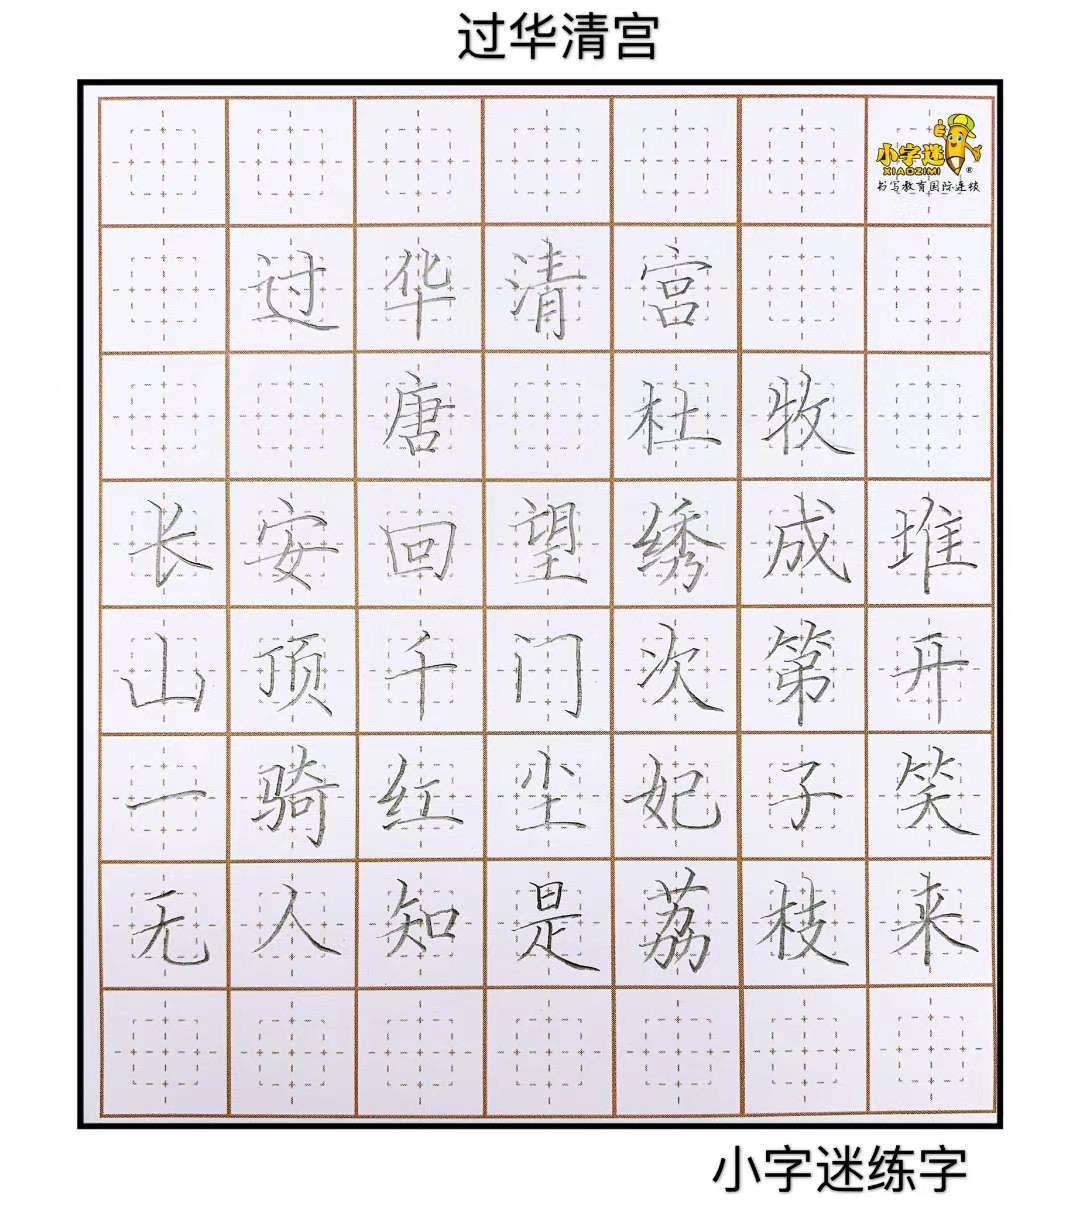 过华清宫
小字迷
XIAOZIMI®
书写教育国际连锁
过华清宫
唐 杜牧
长安回望绣成堆
山顶千门次第开
一骑红尘妃子笑
无人知是荔枝来
小字迷练字